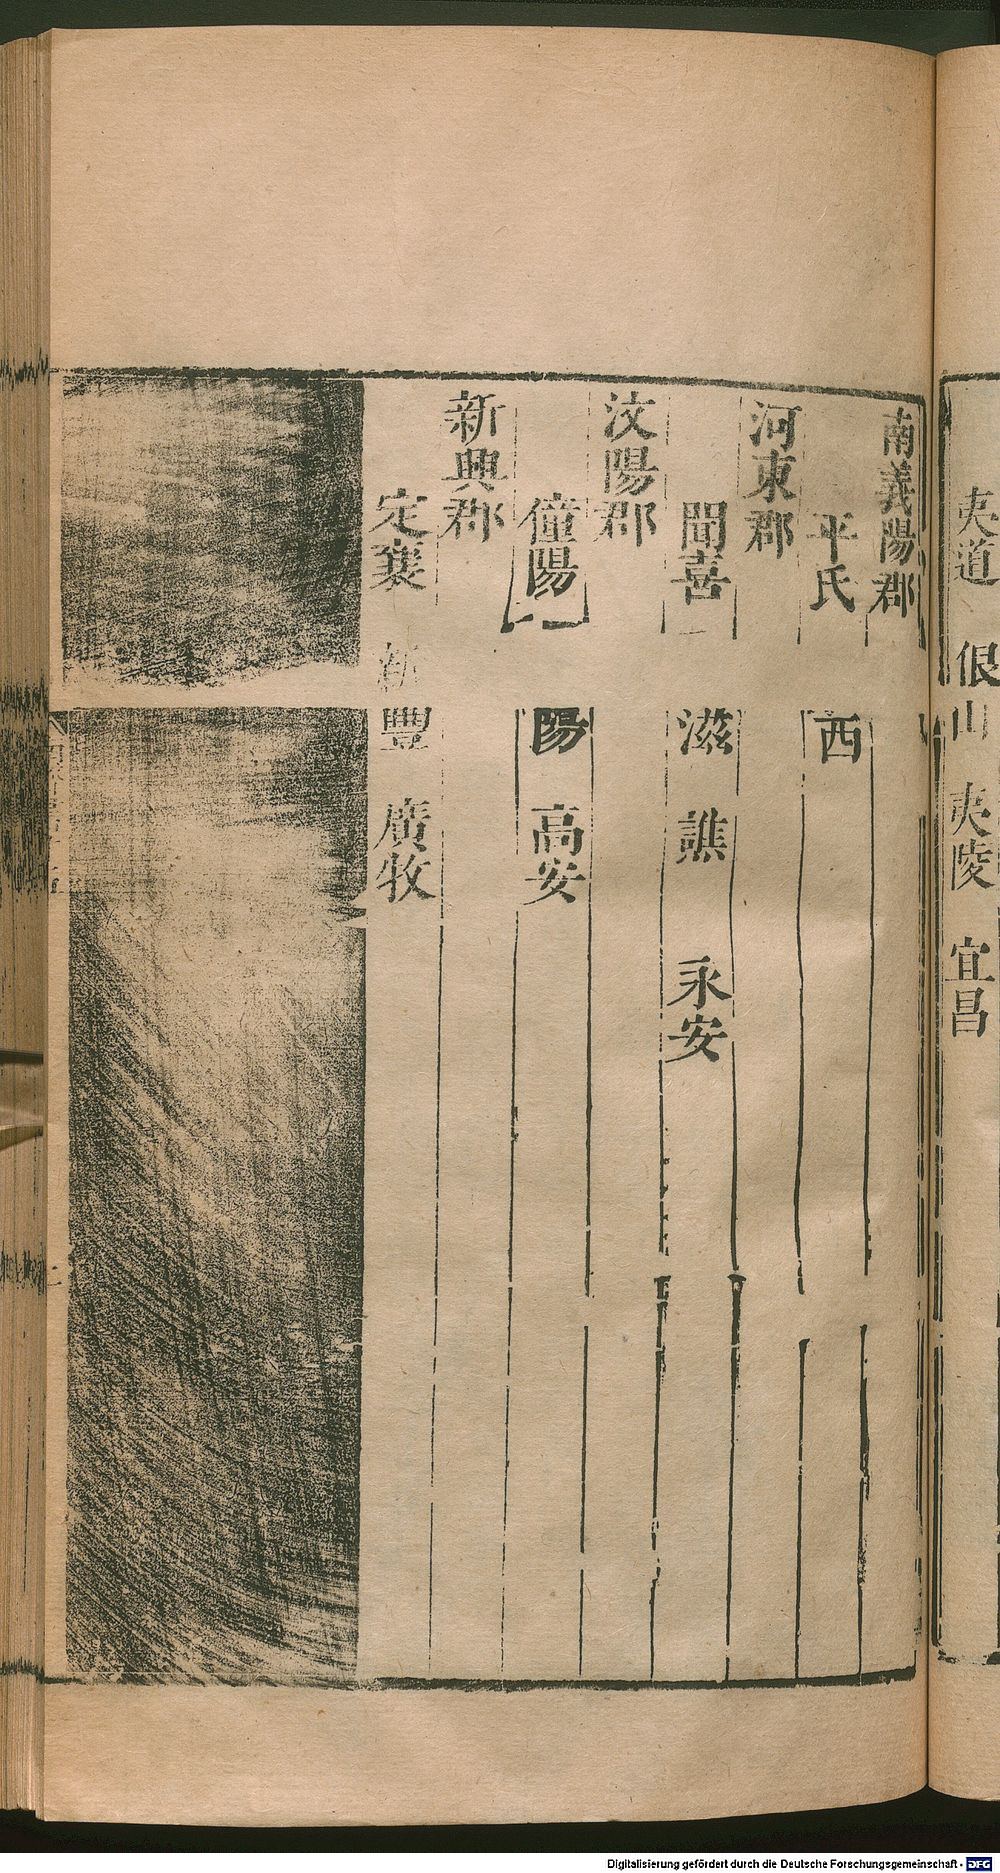 夷道 佷山 夷陵 宜昌
南義陽郡
平氏 西
河東郡
聞喜 滋 譙 永安
汶陽郡
僮陽 陽 高安
新興郡
定襄 新豐 廣牧
Digitalisierung gefördert durch die Deutsche Forschungsgemeinschaft - DFG